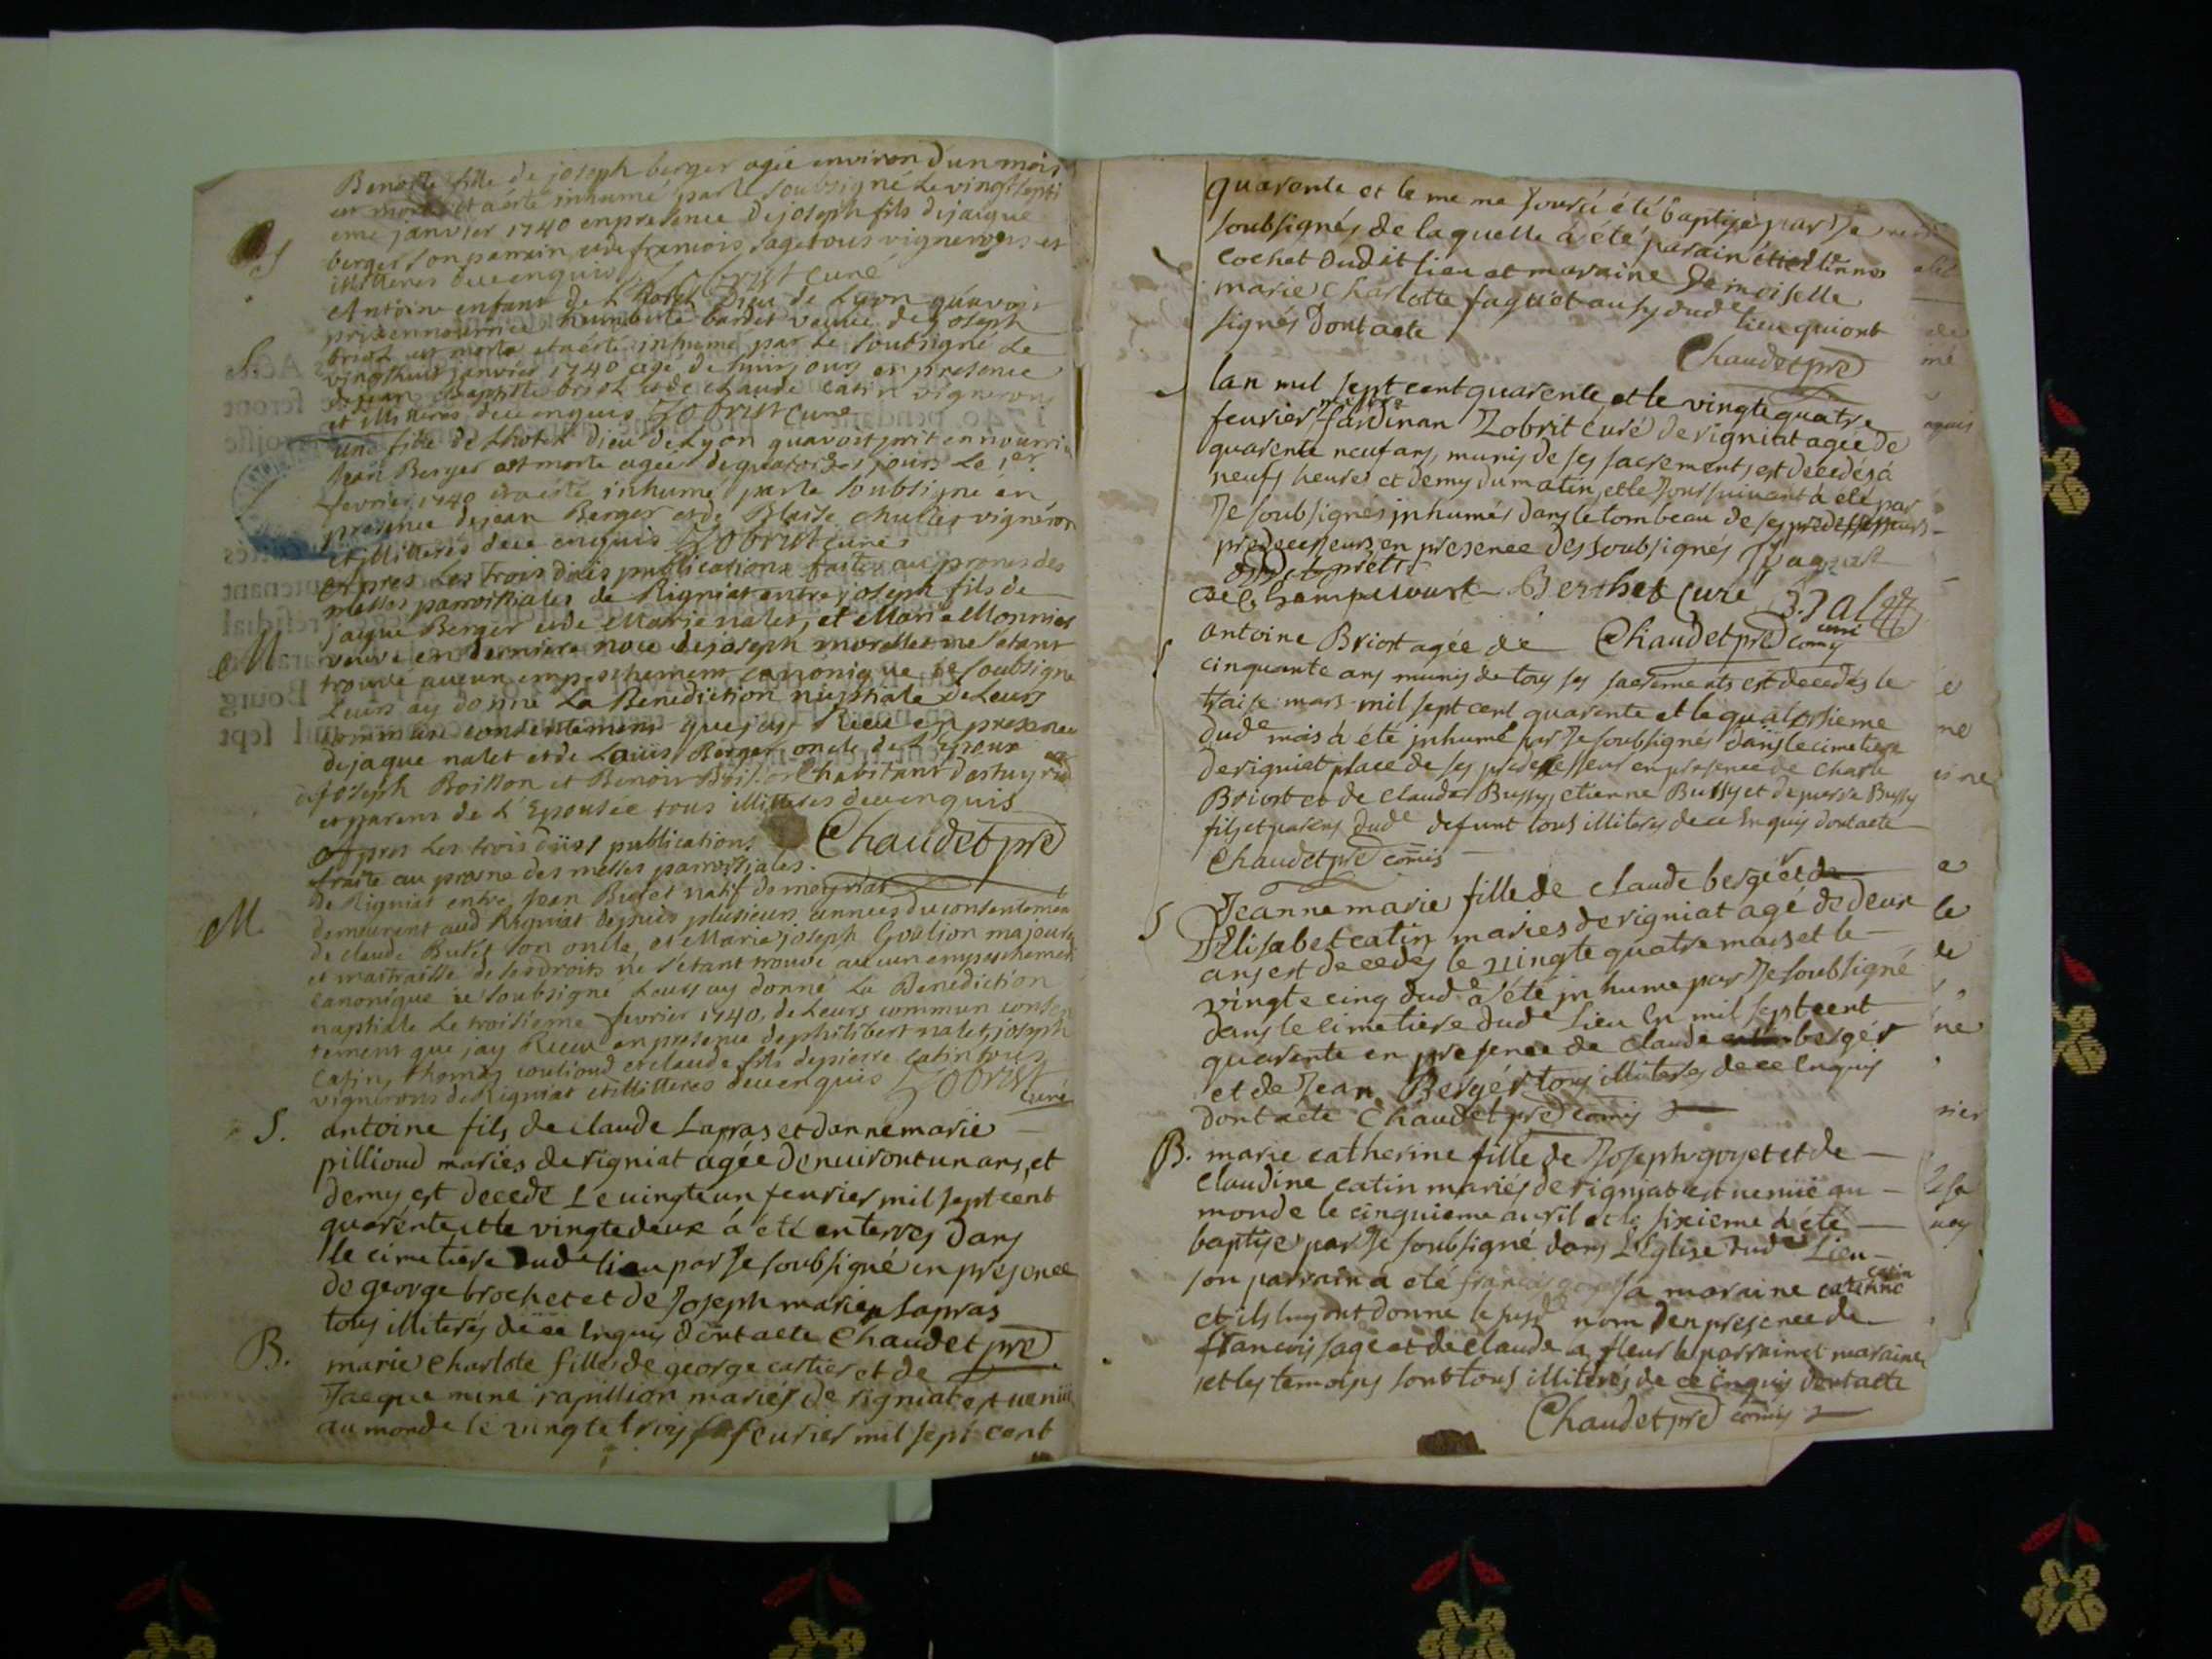 Benoîte fille de joseph berger agée environ d'un mois
est morte et a ésté inhumé par le soubsigné le vingt septi
eme janvier 1740 en presence de joseph fils de jaique
S
berger son parrain, et de francois sage tous vignerons et
illitteres de ce enquis Zobrist curé
Antoine enfant de L'hotel Dieu de Lyon qu'avoit
pris en nourrice humberte bardet veuve de joseph
S.
briot est morte et a ésté inhumé par le soubsigné le
vingt huit janvier 1740 agé de huit jours en presence
de jean Baptiste briot et de claude catin vignerons
et illitteres de ce enquis Zobrist curé
une fille de L'hotel dieu de Lyon qu'avoit prit en nourrice
Jean Berger est morte agée de quatorze jours le 1er
fevrier 1740 et a ésté inhumé par le soubsigné en
presence de jean Berger et de Blaise chullet vigneron
et illitteres de ce enquis Zobrist curé
Apres les trois dües publications faites aux prones des
messes parroissiales de Rigniat entre joseph fils de
jaque Berger et de Marie nalet, et Marie Monnier
M
veuve en derniere noce de joseph morellet ne s'étant
trouvé aucun empeschement cannonique je soubsigné
Leurs ay donné La Benediction nuptiale de Leurs
commun consentement que j'ay Rieceu en presence
de jaque nalet et de Louis Berger oncle de L'Epoux
de joseph Boisson et Benoit Boisson habitant
et parens de L'Epousée tous illitteres de ce enquis
Chaudet pre
Apres les trois dües publications
faite au prosne des messes parroissiales
de Rigniat entre Jean Buſet natif de meyriat
M.
demeurent aud Rigniat depuis plusieurs années du consentement
de claude Buſet son oncle, et Marie joseph Goulion majeure
et maitraisse de ses droits ne s'étant trouvé aucun empeschement
canonique je soubsigné Leurs ay donné La Benediction
nuptiale Le troisieme fevrier 1740, de Leurs commun consen
tement que j'ay Rieceu en presence de philibert nalet, joseph
catin, thomas couliond et claude fils de pierre catin tous
vignerons de Rigniat et illitteres de ce enquis Zobrist
curé
S.
antoine fils de claude Lapras et d'annemarie
pillioud mariés de rigniat agée denuiront un ans, et
demy est decedé Le vingte un feurier mil sept cent
quarente et le vingte deux à été enterres dans
le cimetiere dude lieu par Je soubsigné en presence
de george brochet et de Joseph marie Lapras
tous illiterés de ce Enquis dont acte Chaudet pre
B.
marie charlote fille de george cartier et de
Jacque mine rapillion mariés de rigniat est venüe
au monde le vingte trois feurier mil sept cent
quarente et le meme Jour à été baptisé par Je
soubsignés de laquelle à été parain étienne
cochet dudit lieu et maraine Demoiselle
marie charlotte faquet ausy dude lieu qui ont
signés dont acte
Chaudet pre
lan mil sept cent quarente et le vingte quatre
feurier fardinan Zobrit curé de rigniat agée de
quarente neuf ans, munis de ses sacrements, est decedés à
neufs heures et demy du matin, et le Jour suivant à été par
Je soubsignés inhumés dans le tombeau de ses predessesseurs
predecesseurs en presence des soubsignés
Berthet curé
antoine Briort agée de Chaudet pre comis
cinquante ans munis de tous ses sacrements est decedés le
traise mars mil sept cent quarente et le quatorsieme
dude mois à été inhumé par Je soubsignés dans le cimetiere
de rigniat place de ses predecesseur en presence de charle
Briort et de claude Bussy, etienne Bussy et de pierre Bussy
fils et parens dude defunt tous illiteres de ce Enquis dont acte
Chaudet pre comis
S
Jeanne marie fille de claude bergér et de
Elisabet catin mariés de rigniat agé de deux
ans est decedés le vingte quatre mars et le
vingte cinq dude à été inhume par Je soubsigné
dans le cimetiere dude Lieu En mil sept cent
quarente en presence de claude bergér
et de Jean Bergér tous illiteres de ce Enquis
dont acte Chaudet pre comis
B.
marie catherine fille de Joseph goyet et de
claudine catin mariés de rigniat est venüe au
monde le cinquieme auril et le sixieme à été
baptisé par Je soubsigné dans L'Eglise dude Lieu
son parrain à eté francois sa maraine catin
et ils luy ont donne le susde nom en presence de
francois sage et de claude la fleur le parrain et maraine
et les temoins sont tous illiteres de ce enquis dont acte
Chaudet pre comis